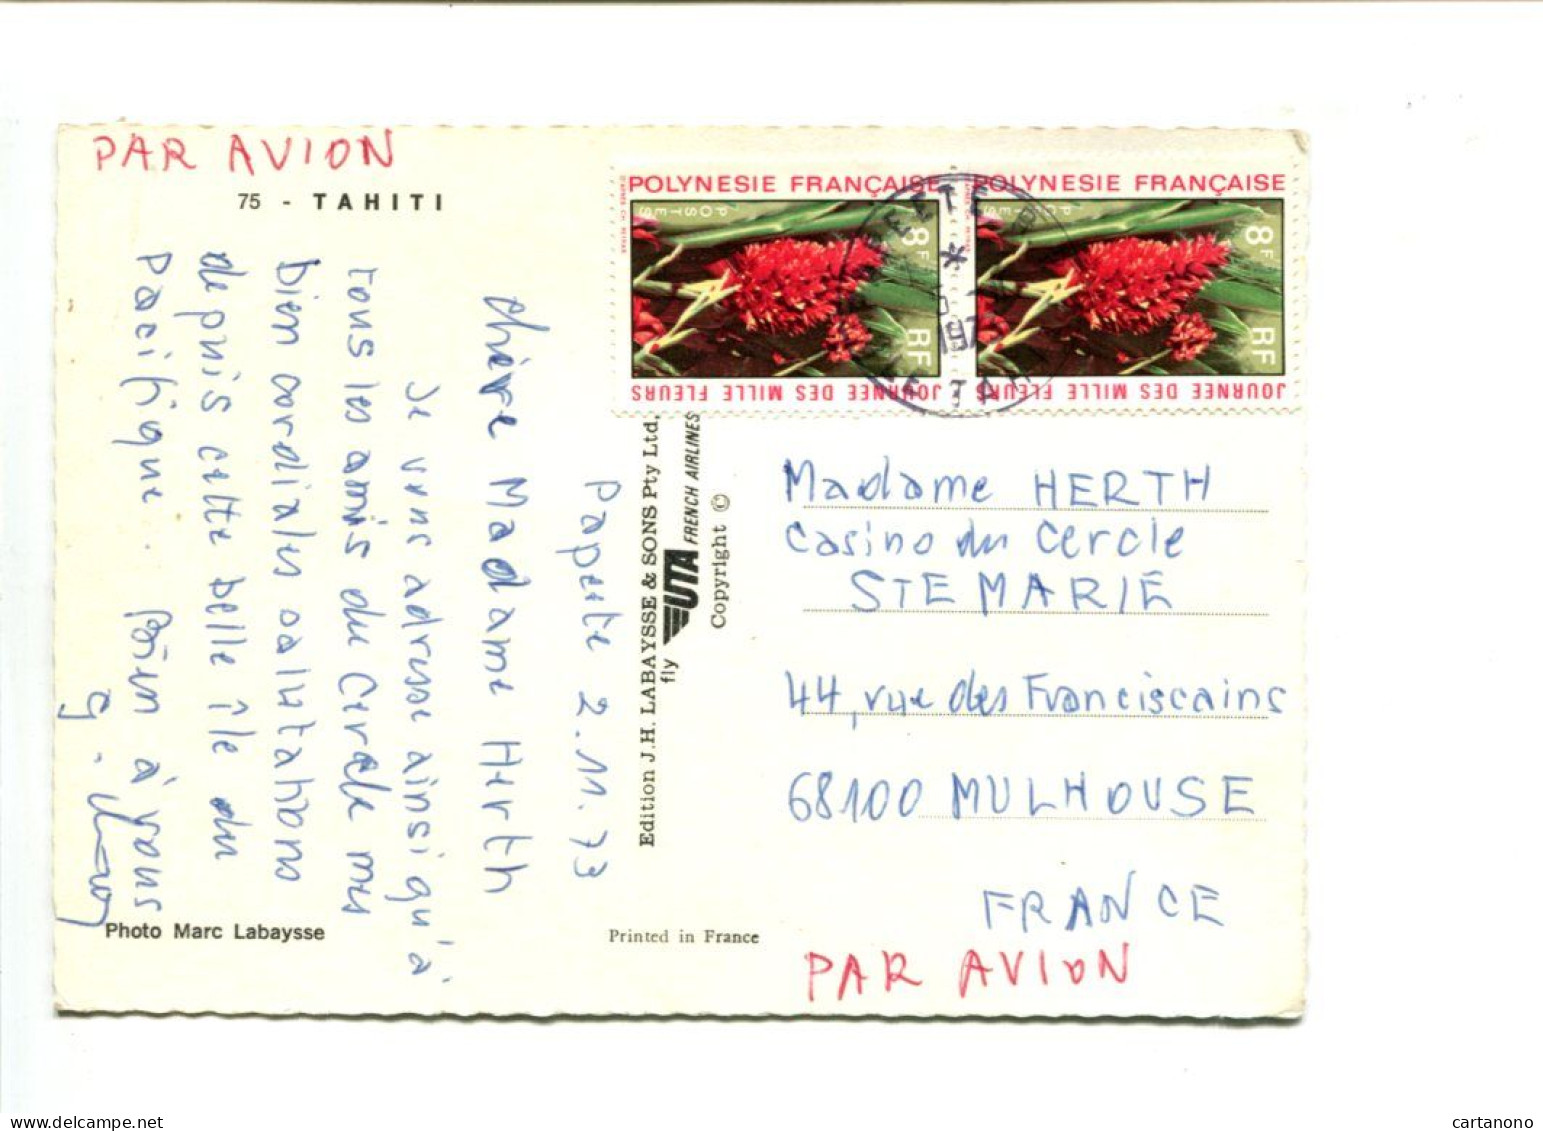 PAR AVION
75 - TAHITI
POLYNESIE FRANÇAISE
POSTES
8F
RF
JOURNÉE DES MILLE FLEURS
POLYNESIE FRANÇAISE
POSTES
8F
RF
JOURNÉE DES MILLE FLEURS
Papeete 2.11.73
Chère Madame Herth
Je vous adresse ainsi qu'à
tous les amis du Cercle mes
bien cordiales salutations
depuis cette belle île du
Pacifique. Bien à vous
G.
Edition J.H. LABAYSSE & SONS Pty Ltd,
fly UTA FRENCH AIRLINES
Copyright ©
Madame HERTH
Casino du Cercle
STE MARIE
44, rue des Franciscains
68100 MULHOUSE
FRANCE
PAR AVION
Photo Marc Labaysse
Printed in France
cartanono